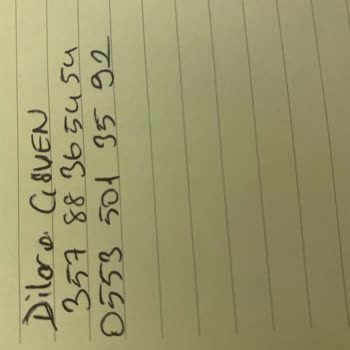 Dilara GÜVEN
357 88 36 54 54
0553 501 35 92